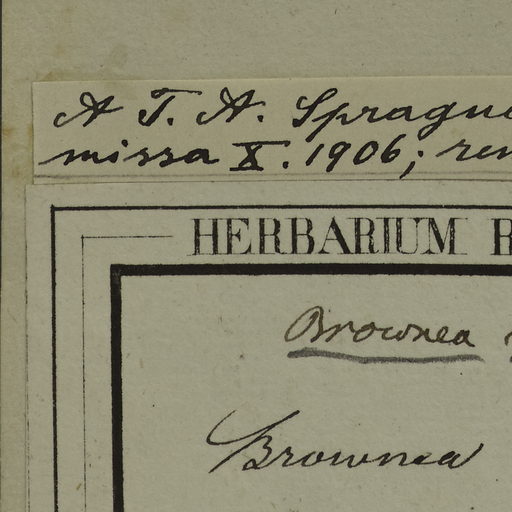 A T. A. Sprague
missa X. 1906; ren
HERBARIUM
Brownea
Brownea